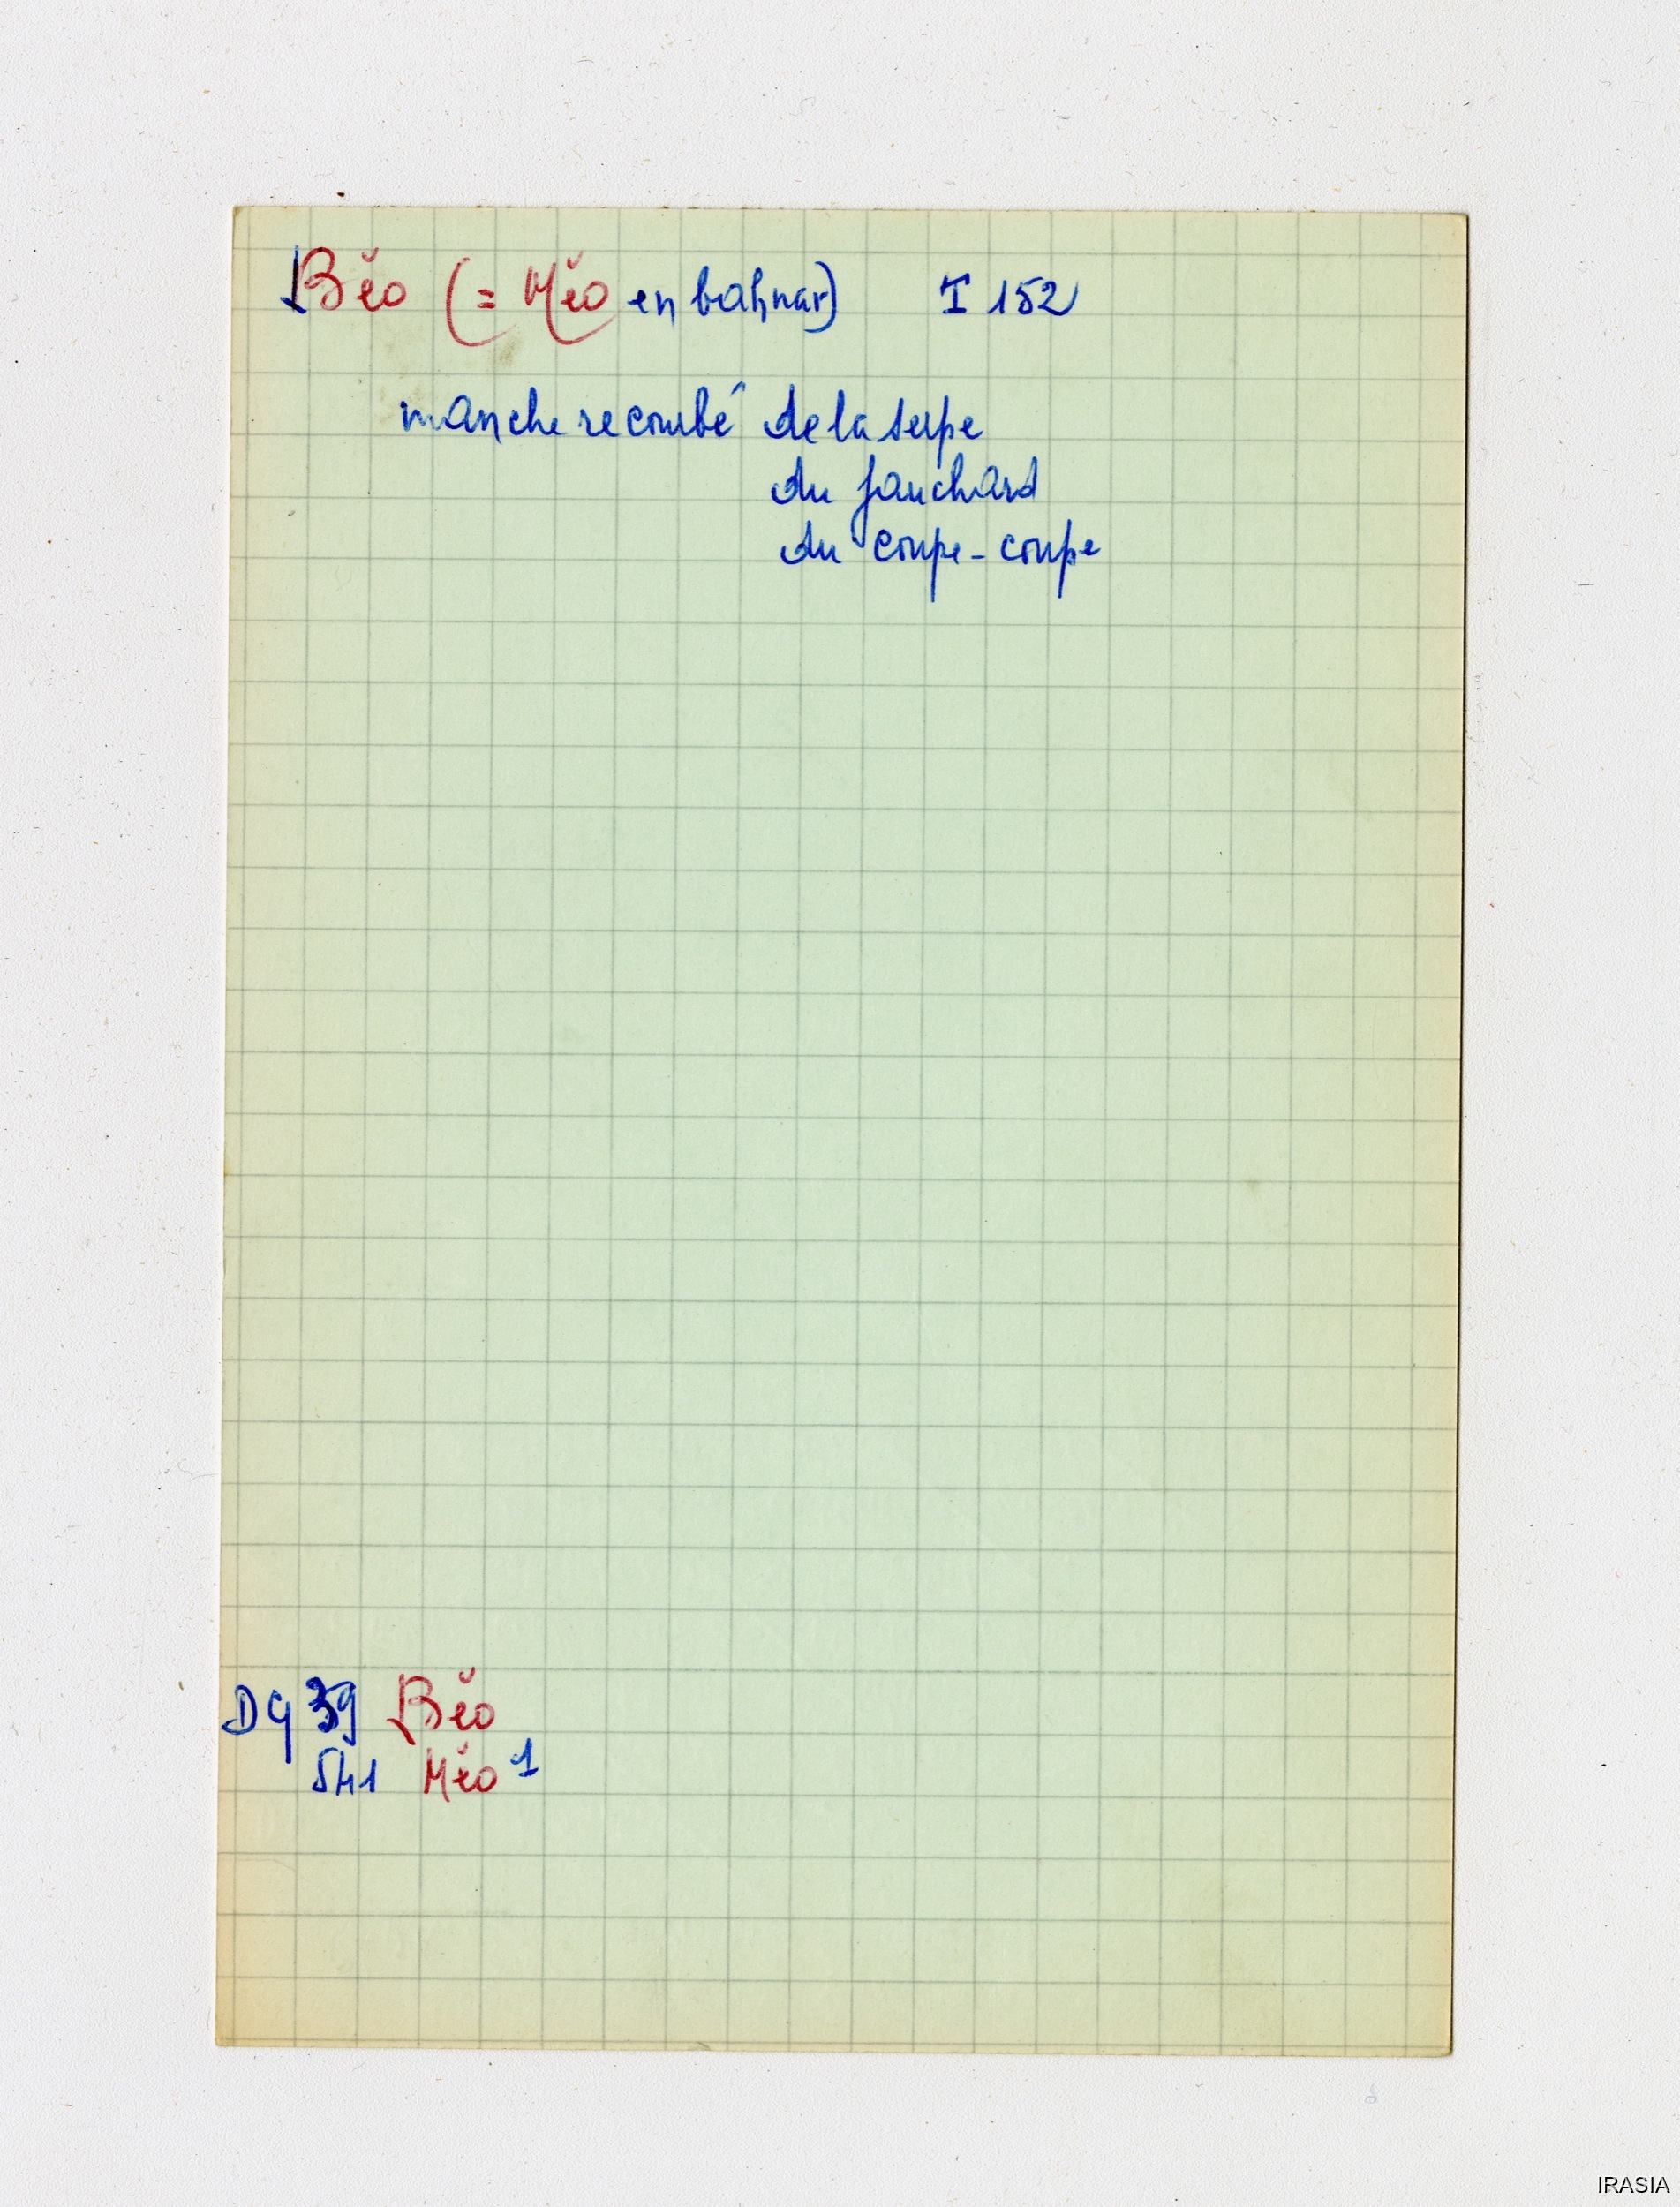 Bĕo (= Mĕo en bahnar) I 152
manche recourbé de la serpe
du fauchard
du coupe-coupe
DG 39 Bĕo
541 Mĕo 1
IRASIA